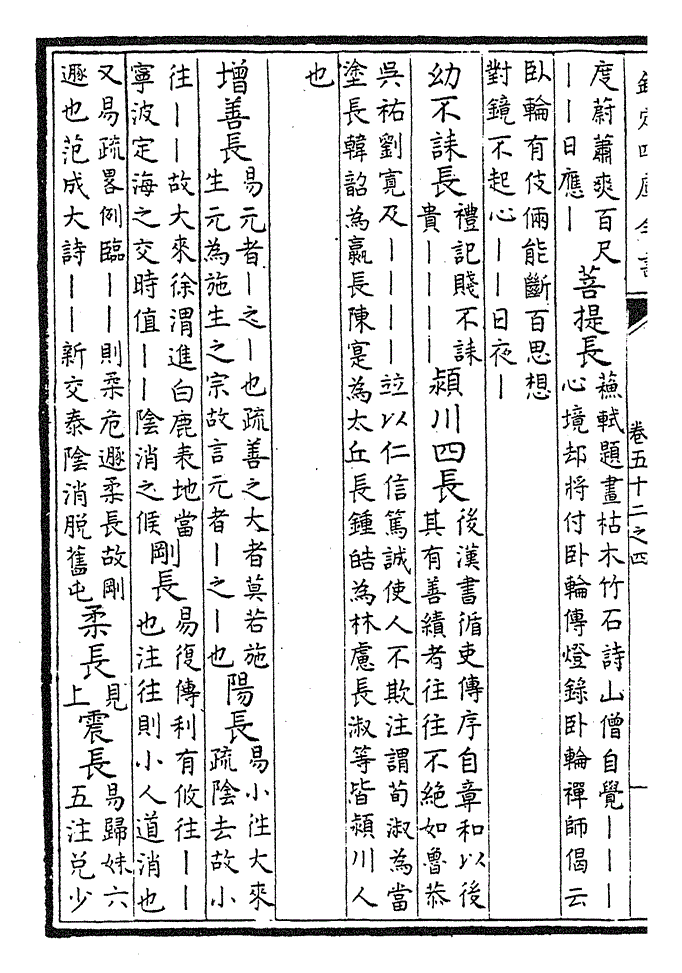 欽定四庫全書
卷五十二之四
一
度蔚蕭爽百尺
｜｜日應｜
菩提長
蘇軾題畫枯木竹石詩山僧自覺｜｜｜
心境却將付臥輪傳燈錄臥輪禪師偈云
臥輪有伎倆能斷百思想
對鏡不起心｜｜日夜｜
幼不誄長
禮記賤不誄
貴｜｜｜｜
潁川四長
後漢書循吏傳序自章和以後
其有善績者往往不絕如魯恭
吳祐劉寬及｜｜｜｜竝以仁信篤誠使人不欺注謂荀淑為當
塗長韓韶為嬴長陳寔為太丘長鍾皓為林慮長淑等皆潁川人
也
增善長
易元者｜之｜也疏善之大者莫若施
生元為施生之宗故言元者｜之｜也
陽長
易小往大來
疏陰去故小
往｜｜故大來徐渭進白鹿表地當
寧波定海之交時值｜｜陰消之候
剛長
易復傳利有攸往｜｜
也注往則小人道消也
又易疏畧例臨｜｜則柔危遯柔長故剛
遯也范成大詩｜｜新交泰陰消脫舊屯
柔長
見
上
震長
易歸妹六
五注兌少